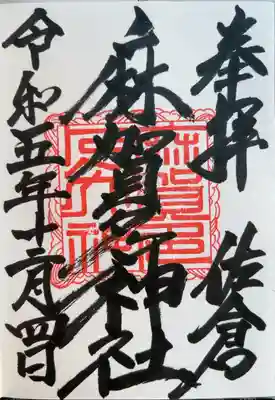 奉拝 佐倉
麻賀多神社
令和五年十二月四日